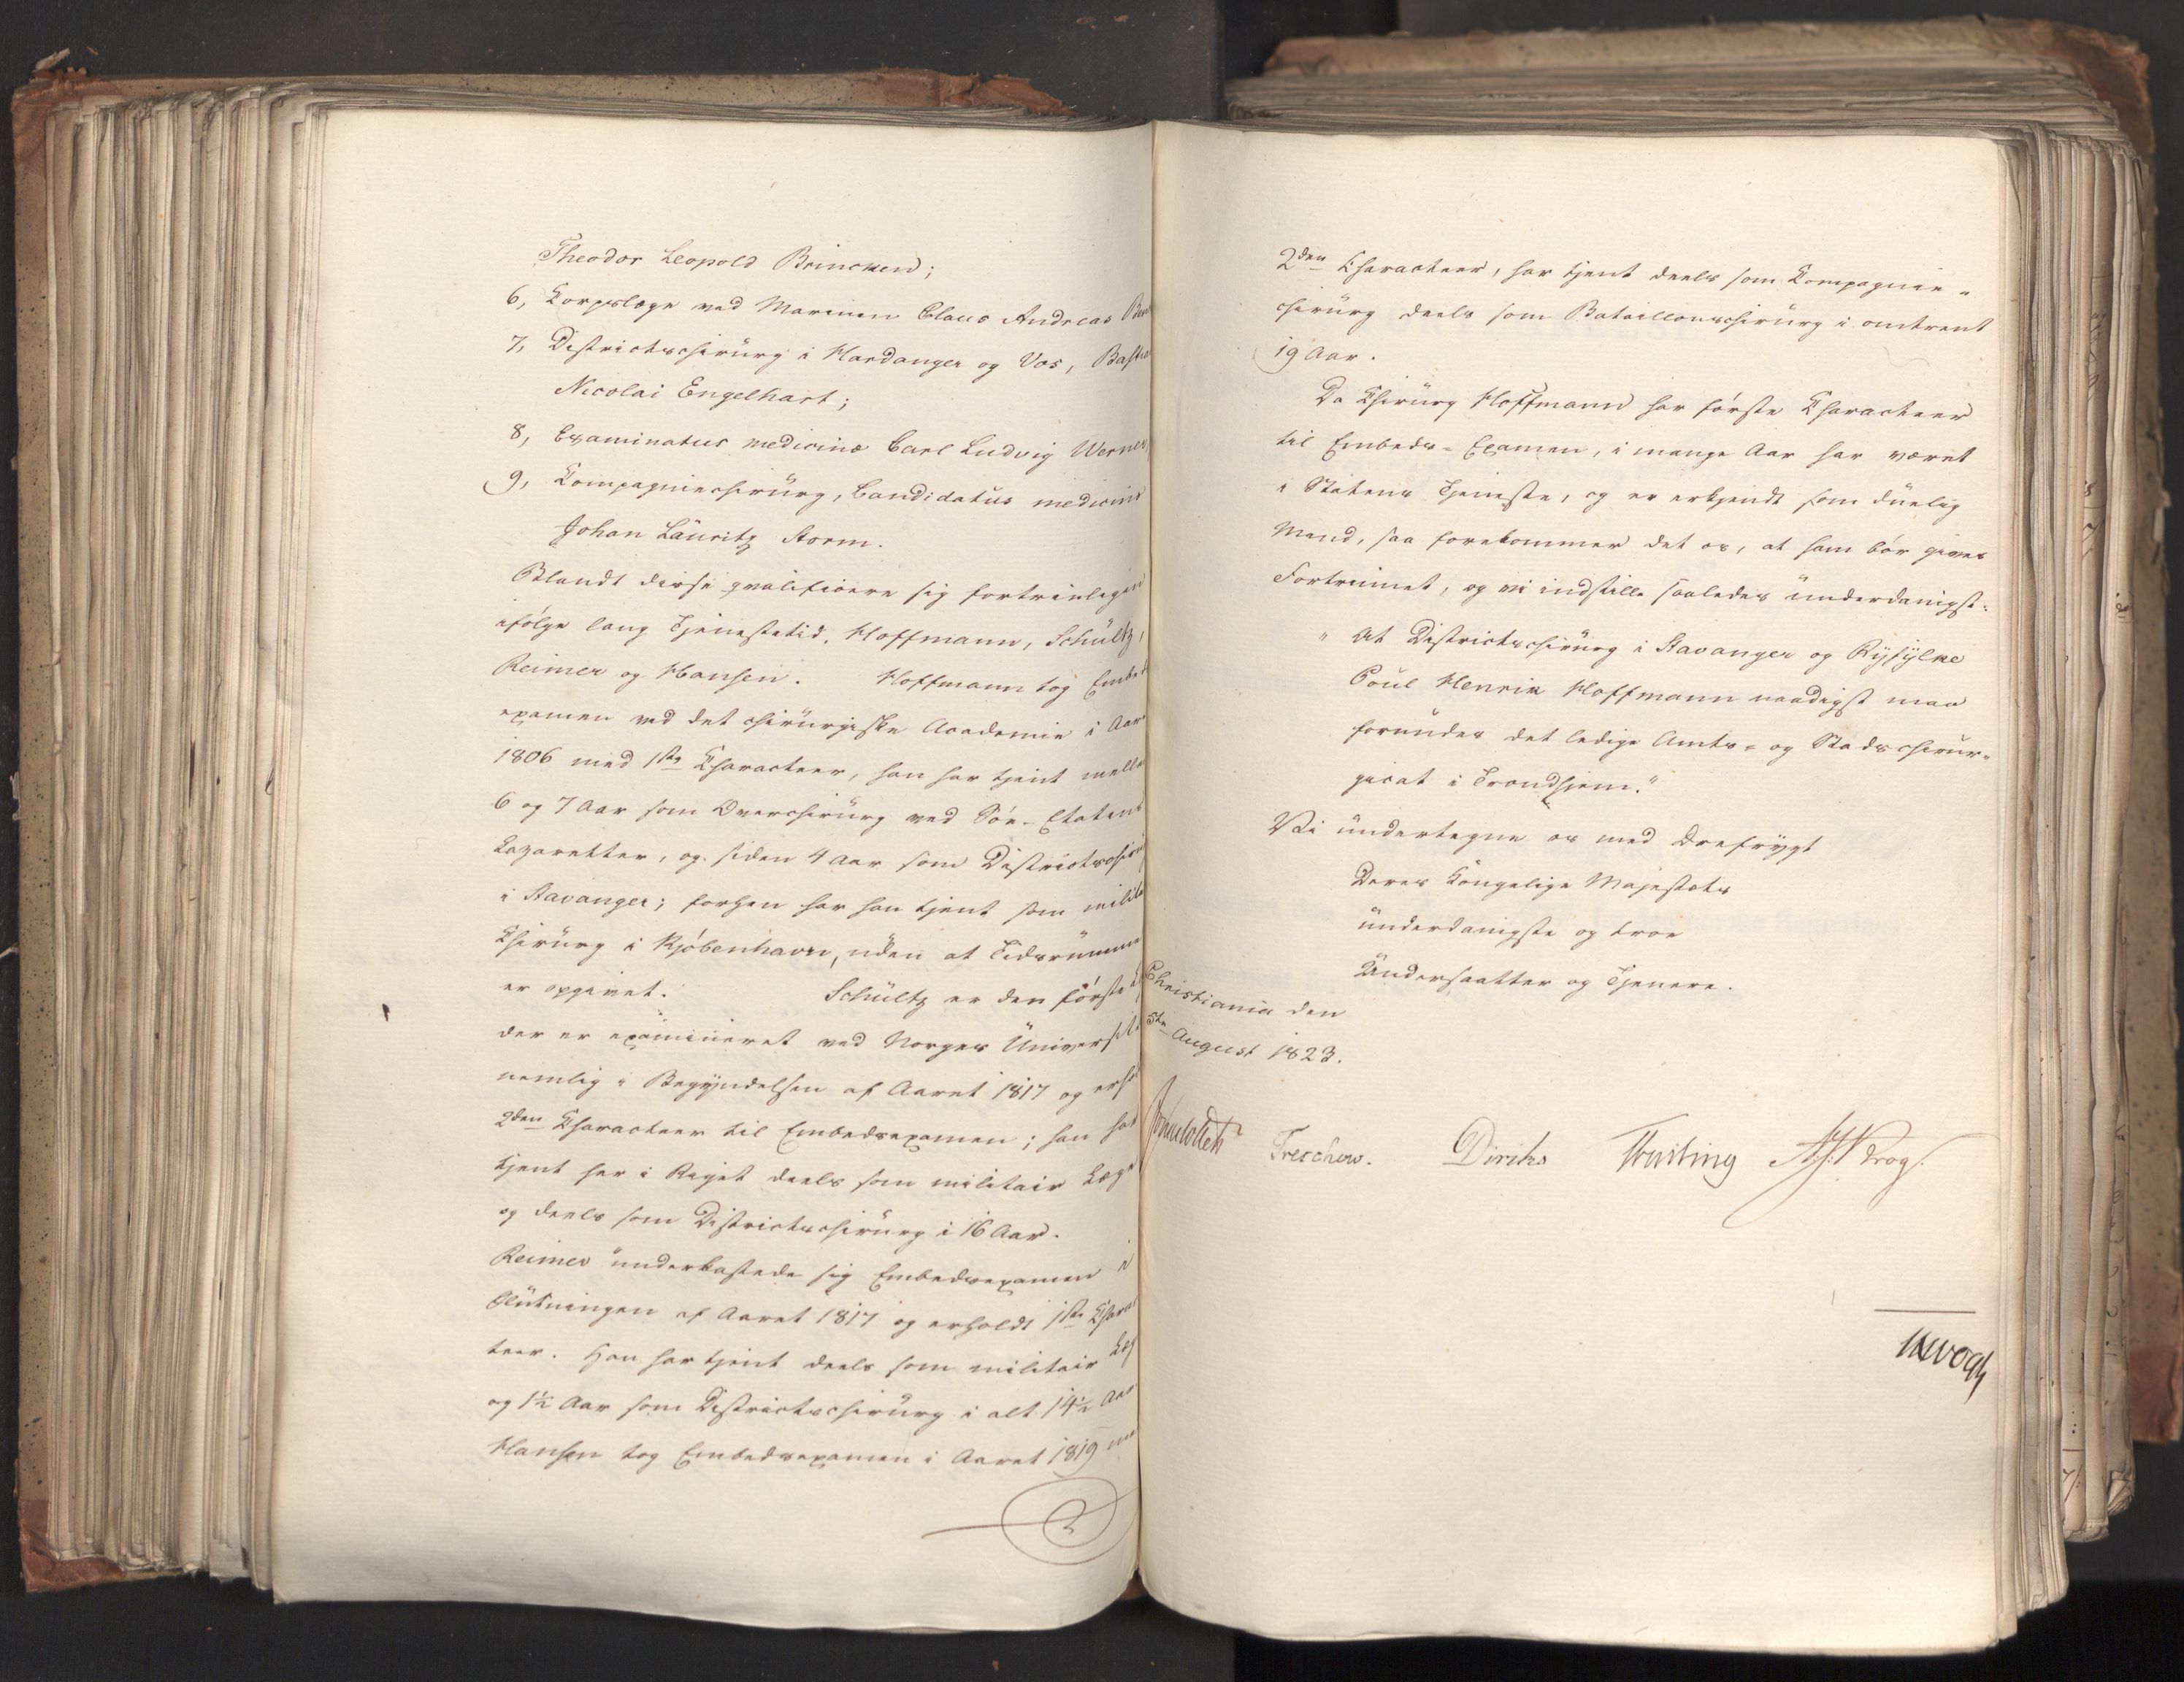 Theodor Leopold Brincken;
6, Korpslæge ved Marinen Claus Andreas
7, Districtschirurg i Hardanger og Vos,
Nicolai Engelhart;
8, Examinatus medicinæ Carl Ludvig Werner,
9, Kompagniechirurg, Candidatus medicinæ
Johan Lauritz Storm.
Blandt disse qvalificere sig fortrinligen
ifølge lang Tjenestetid, Hoffmann, Schültz,
Reimer og Hansen. Hoffmann tog Embeds
examen ved det chirurgiske Academie i Aar
1806 med 1ste Characteer, han har tjent mellem
6 og 7 Aar som Overchirurg ved Söe-Etatens
Lazaretter, og siden 4 Aar som Districtschirurg
i Stavanger; forhen har han tjent som militair
Chirurg i Kjöbenhavn, uden at Tidsrummet
er opgivet. Schültz er den förste
der er examineret ved Norges Universitet
nemlig i Begyndelsen af Aaret 1817 og erholdt
2den Characteer til Embedsexamen; han har
tjent her i Riget deels som militair Læge
og deels som Districtschirurg i 16 Aar.
Reimer underkastede sig Embedsexamen i
Slutningen af Aaret 1817 og erholdt 1ste Charac
teer. Han har tjent deels som militair Læge
og 1½ Aar som Districtschirurg i alt 14½ Aar
Hansen tog Embedsexamen i Aaret 1819 med
2den Characteer, har tjent deels som Kompagnie-
chirurg deels som Bataillonschirurg i omtrent
19 Aar.
Da Chirurg Hoffmann har förste Characteer
til Embeds-Examen, i mange Aar har været
i Statens Tjeneste, og er erkjendt som duelig
Mand, saa forekommer det os, at ham bör gives
Fortrinnet, og vi indstille saaledes underdanigst:
"At Districtschirurg i Stavanger og Ryfylke
Poul Henrik Hoffmann naadigst maa
forundes det ledige Amts- og Stadschirur-
gicat i Trondhjem."
Vi undertegne os med Ærefrygt
Deres Kongelige Majestæts
underdanigste og troe
Undersaatter og Tjenere.
Christiania den
August 1823.
Treschow. Diriks Krog.